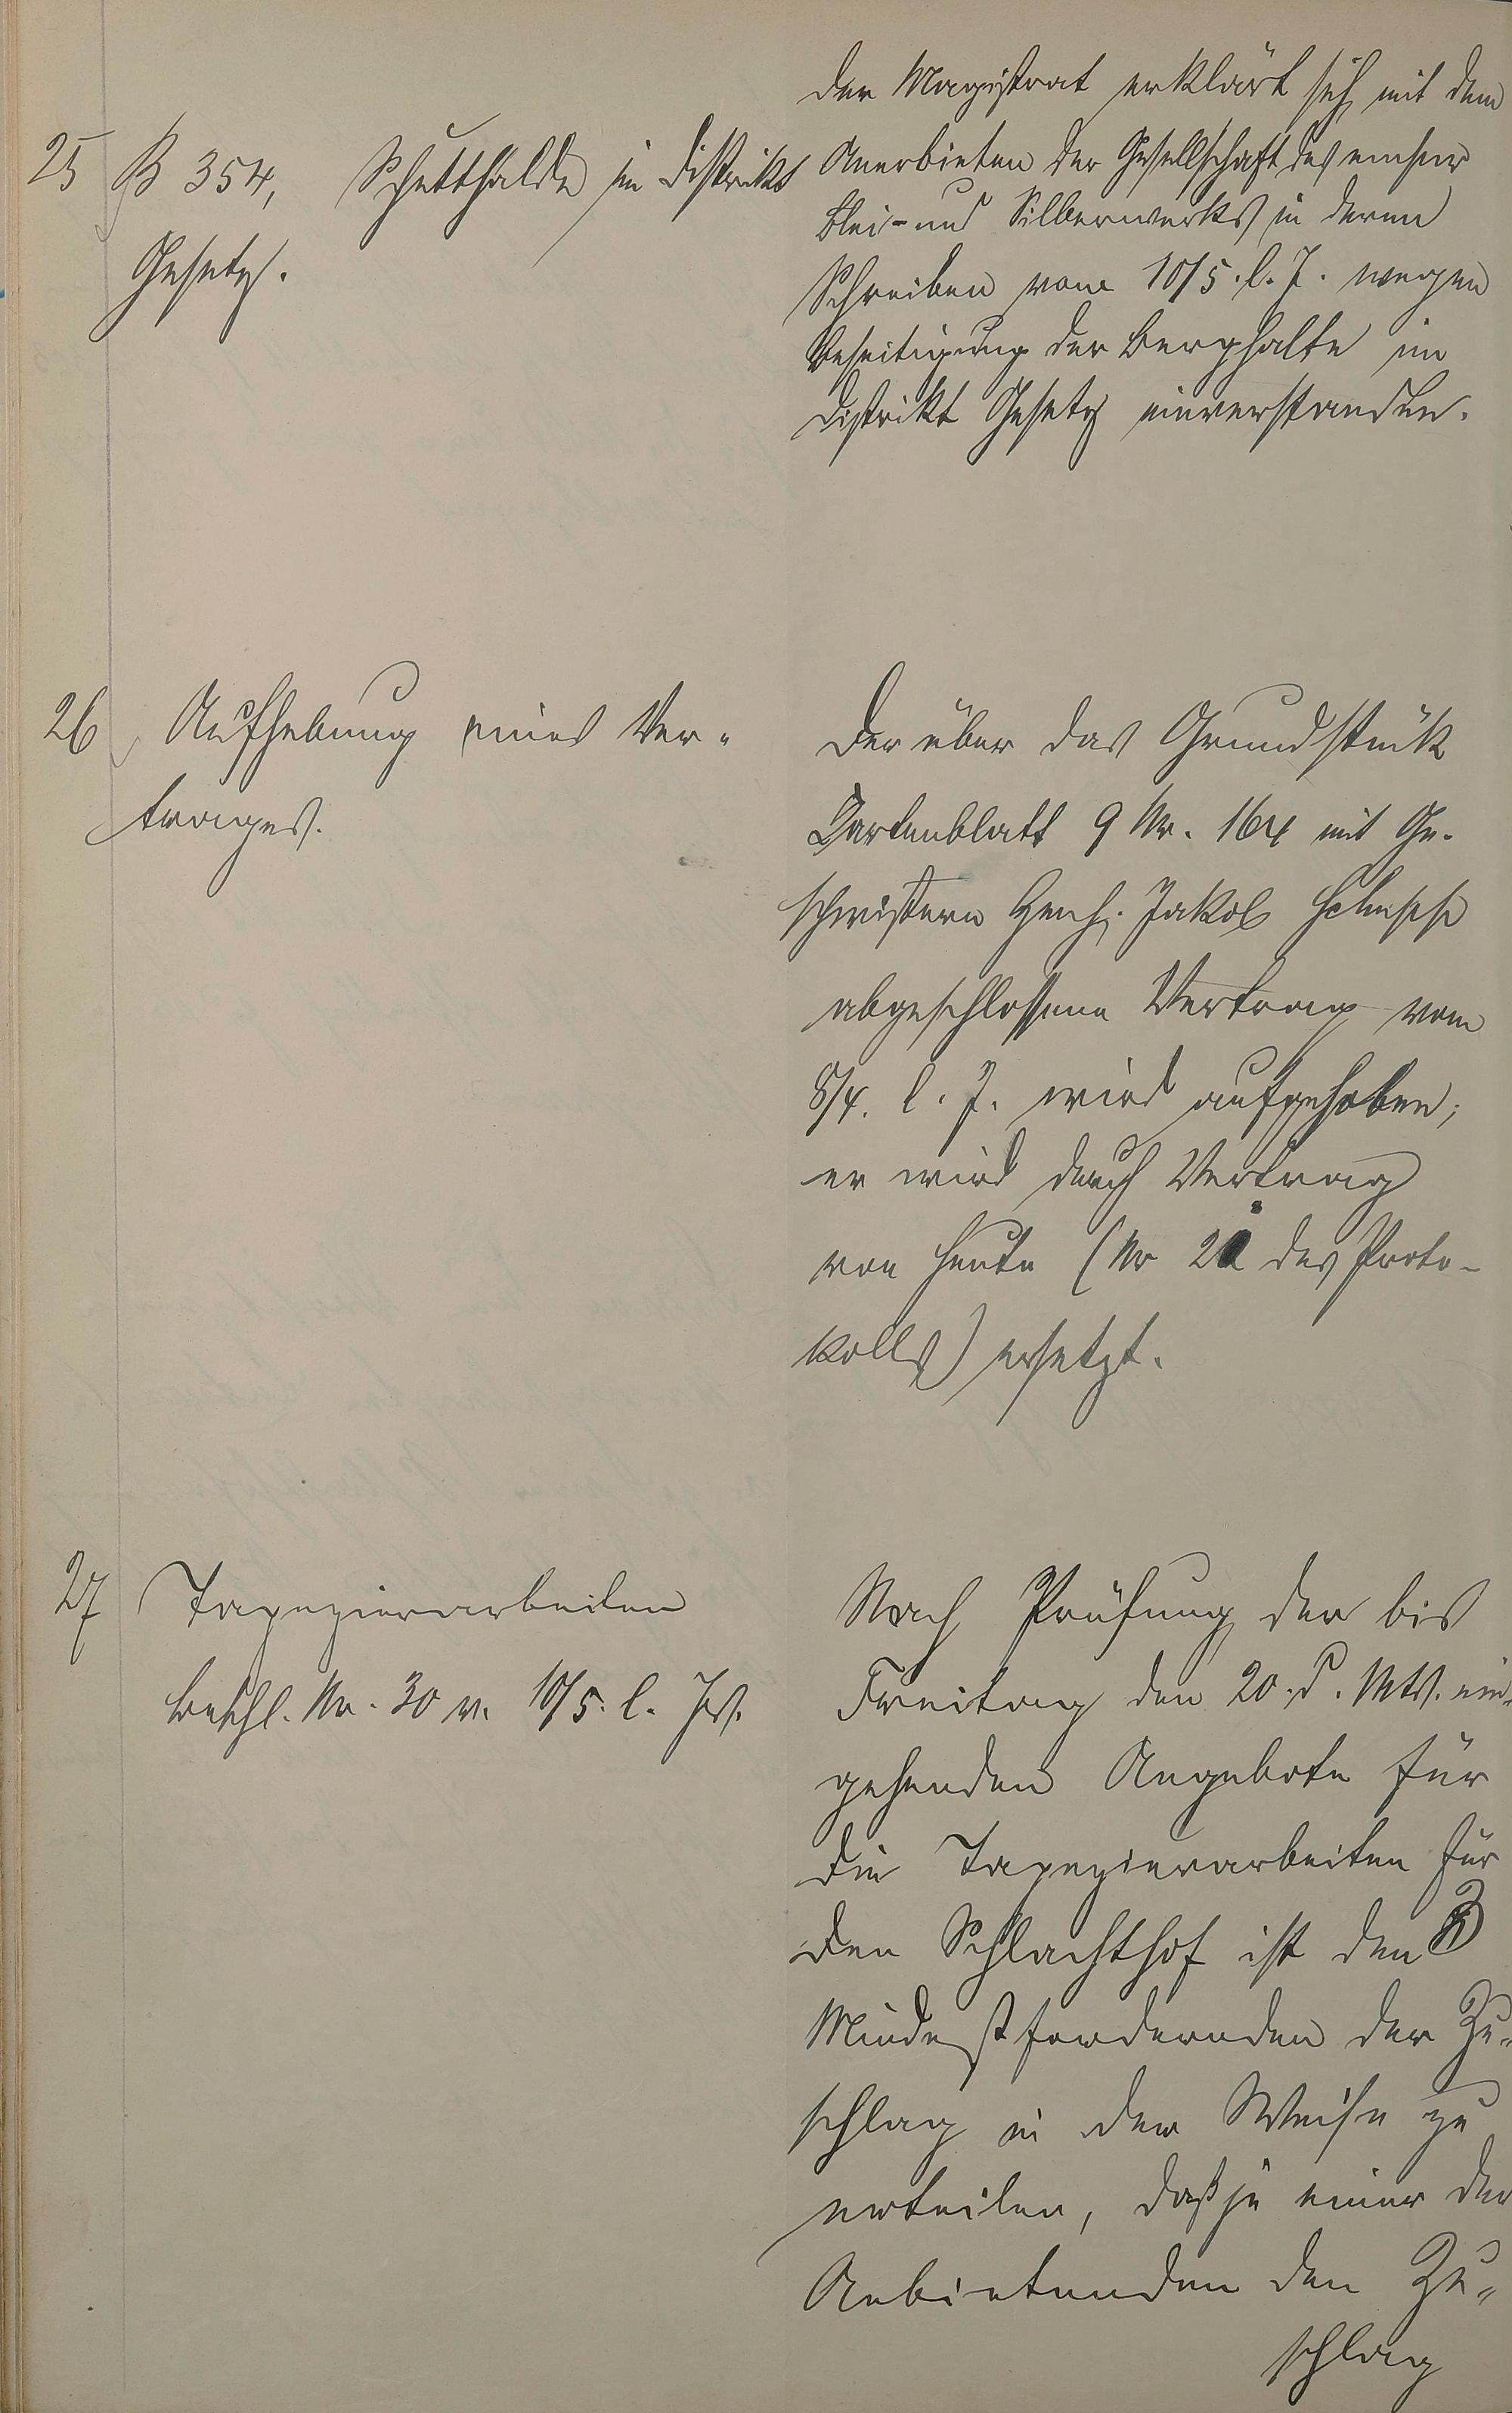 25 B 354, Schutthalde im Distrikt
Gesetz.
Der Magistrat erklärt sich mit dem
Anerbieten der Gesellschaft des emser
Blei- und Silberwerks in deren
Schreiben vom 10/5. l. J. wegen
Beseitigung der Berghalte im
Distrikt Gesetz einverstanden.
26 Aufhebung eines Ver-
trages.
Der über das Grundstück
Kartenblatt 9 Nr. 164 mit Ge-
schwistern Jakob
abgeschlossene Vertrag vom
8/4. l. J. wird aufgehoben;
er wird durch Vertrag
von heute (Nr des Proto-
kolls) ersetzt.
27 Tapezierarbeiten
Beschl. Nr. 30 v. 10/5. l. Js.
Nach Prüfung der bis
Freitag den 20. d. Mts. ein-
gehenden Angebote für
die Tapezierarbeiten für
den Schlachthof ist den 3
Mindestfordernden der Zu-
schlag in der Weise zu
erteilen, daß je einer der
Anbietenden den Zu-
schlag